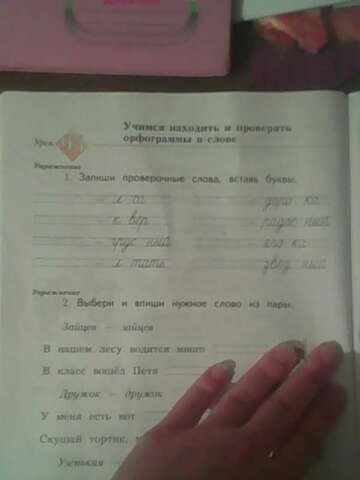 Учимся находить и проверять
орфограммы в слове
Урок
Упражнение
1. Запиши проверочные слова, вставь буквы.
– л са – доро ка
– к вёр – радос ный
– грус ный – яго ка
– л тать – звёзд ный
Упражнение
2. Выбери и впиши нужное слово из пары.
Зайцев – зайцев
В нашем лесу водится много
В класс вошёл Петя
Дружок – дружок
У меня есть кот
Скушай тортик,
Узенькая